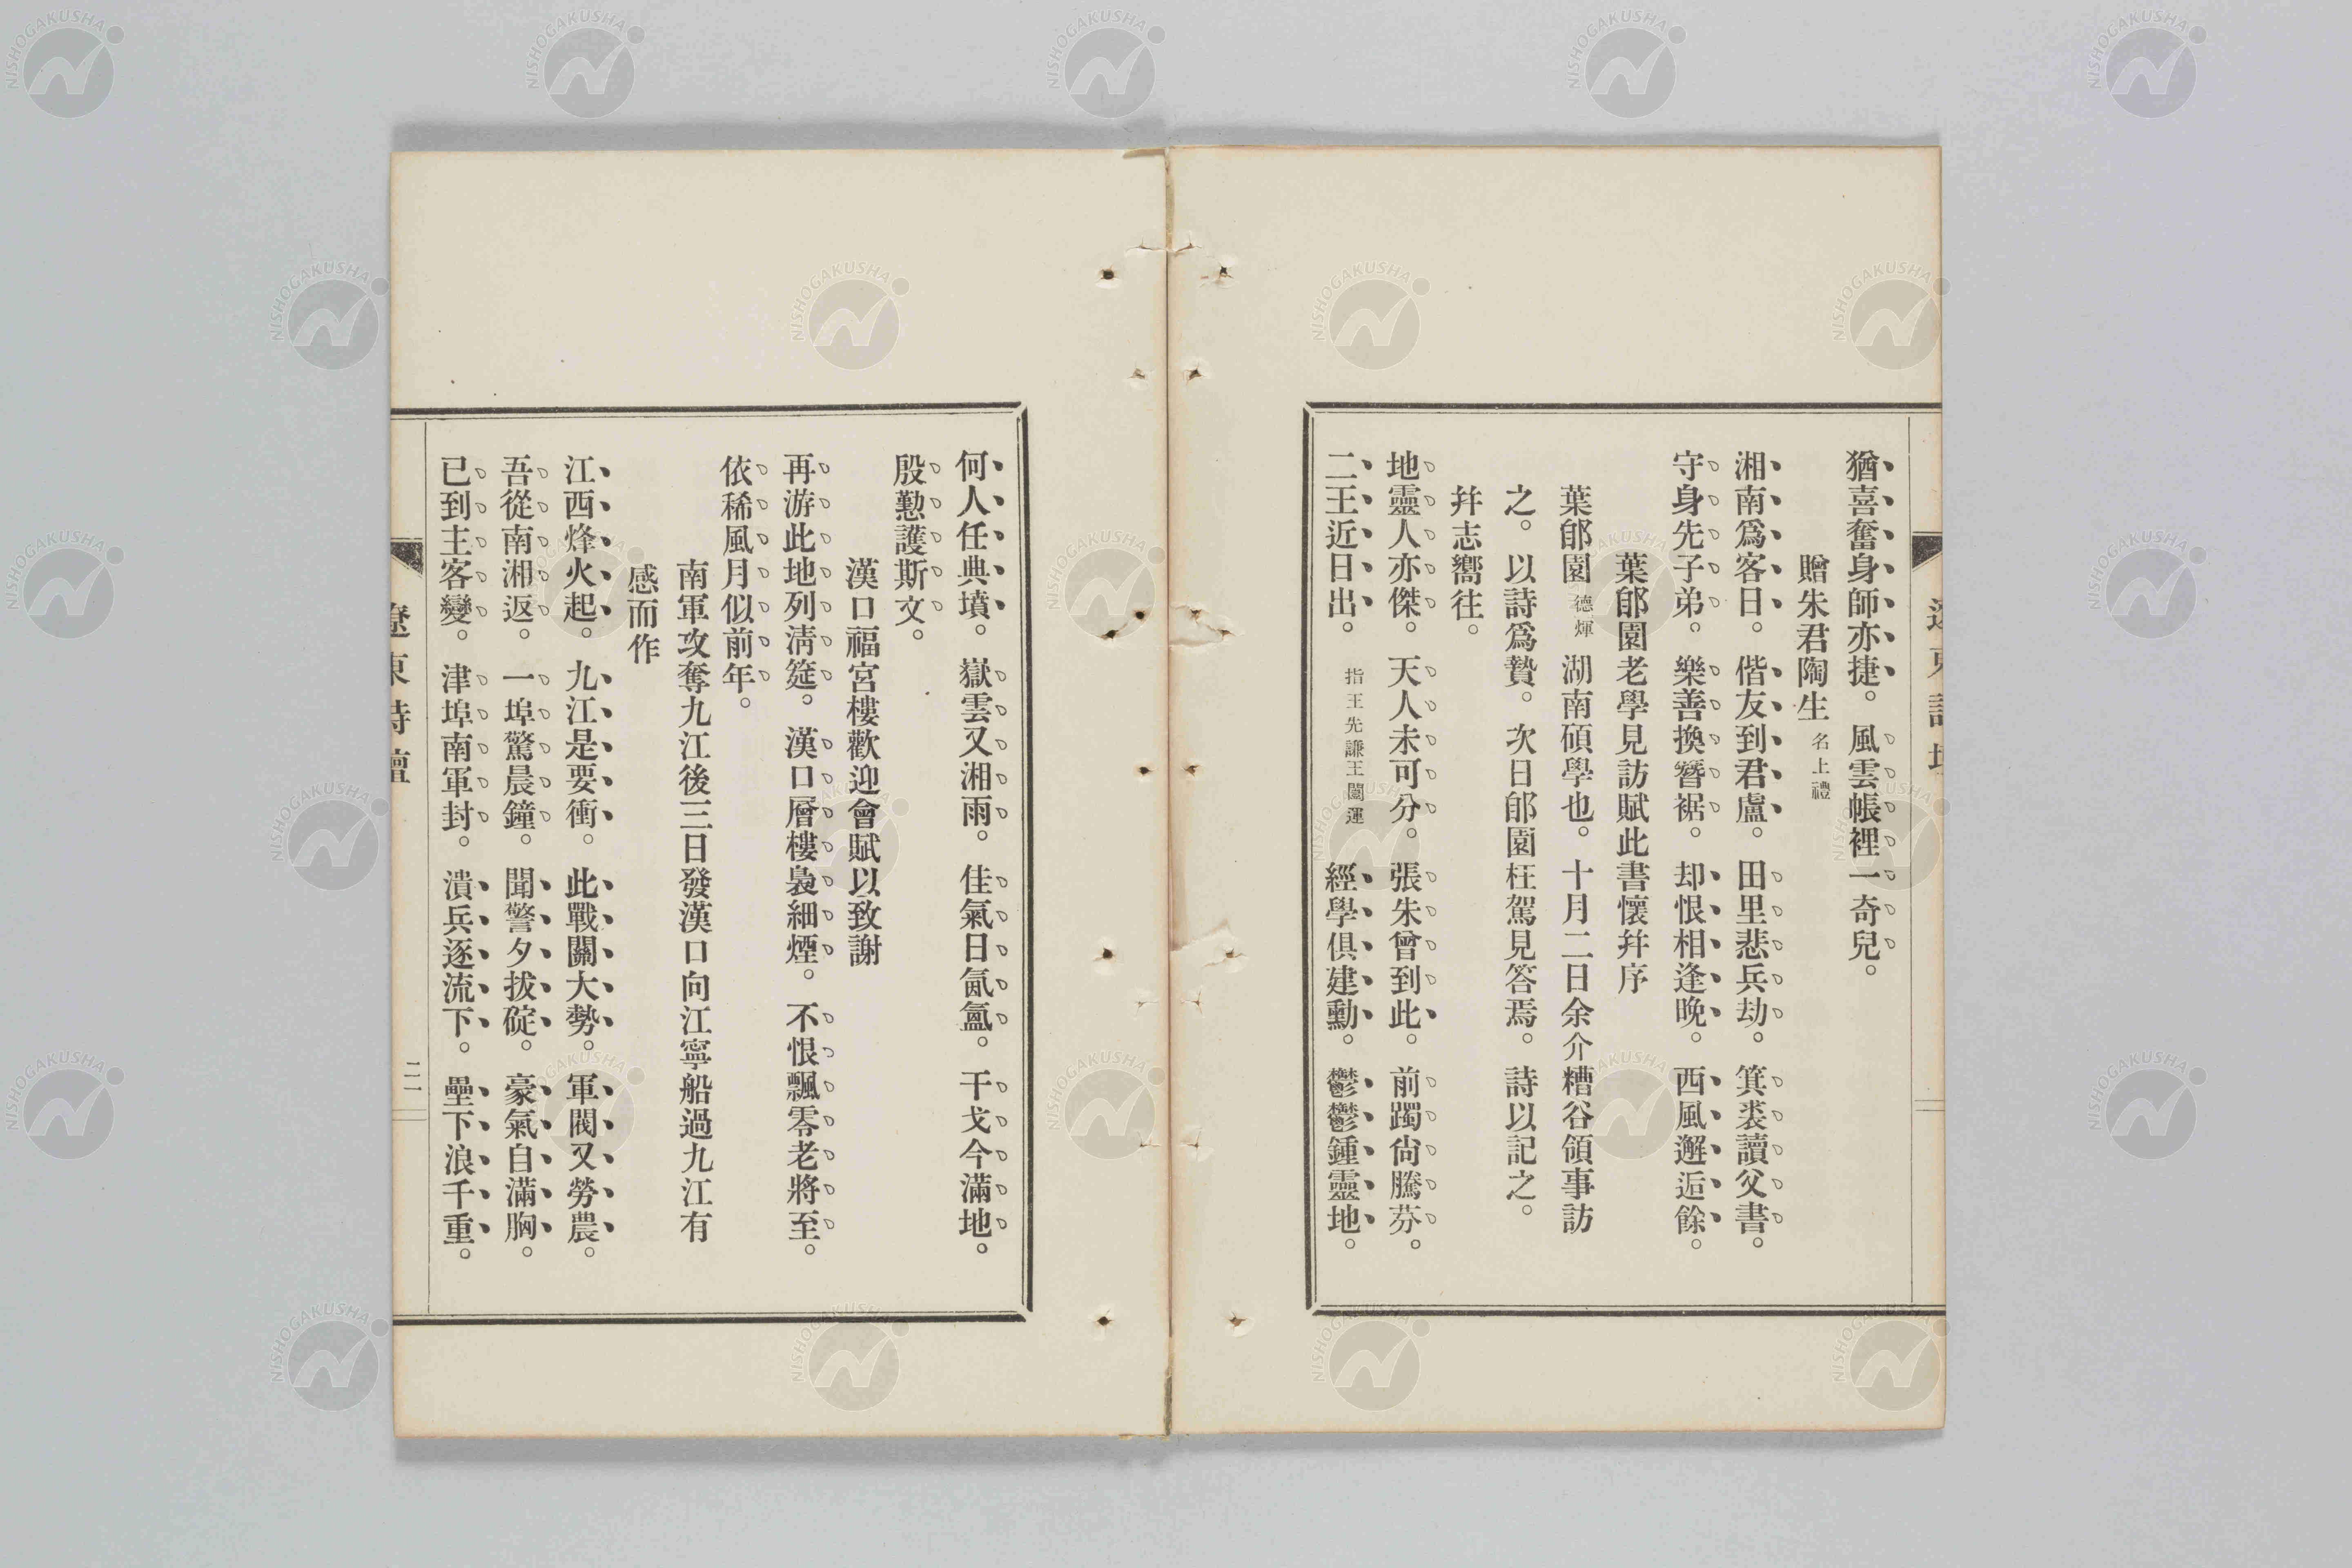 猶喜奮身師亦捷。風雲帳裡一奇兒。
贈朱君陶生名上禮
湘南爲客日。偕友到君盧。田里悲兵劫。箕裘讀父書。
守身先子弟。樂善換簪裾。却恨相逢晩。西風邂逅餘。
葉郋園老學見訪賦此書懷幷序
葉郋園德輝湖南碩學也。十月二日余介糟谷領事訪
之。以詩爲贄。次日郋園枉駕見答焉。詩以記之。
幷志嚮往。
地靈人亦傑。天人未可分。張朱曾到此。前躅尙騰芬。
二王近日出。指王先謙王闓運經學俱建勳。鬱鬱鍾靈地。
何人任典墳。嶽雲又湘雨。佳氣日氤氳。干戈今滿地。
殷懃護斯文。
漢口福宮樓歡迎會賦以致謝
再游此地列淸筵。漢口層樓裊細煙。不恨飄零老將至。
依稀風月似前年。
南軍攻奪九江後三日發漢口向江寧船過九江有
感而作
江西烽火起。九江是要衝。此戰關大勢。軍閥又勞農。
吾從南湘返。一埠驚晨鐘。聞警夕拔碇。豪氣自滿胸。
已到主客變。津埠南軍封。潰兵逐流下。壘下浪千重。
遼東詩壇
二一
NISHOGAKUSHA